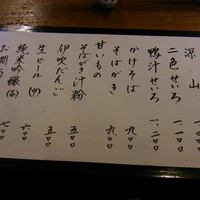 深山 一、〇〇〇
二色せいろ 一、一〇〇
鴨汁せいろ 一、二〇〇
かけそば 九〇〇
そばがき 九〇〇
甘いもの
そばがき汁粉 五〇〇
伊吹だんご 五〇〇
生ビール (中) 六〇〇
純米吟醸 (冷)
お銚子 七〇〇